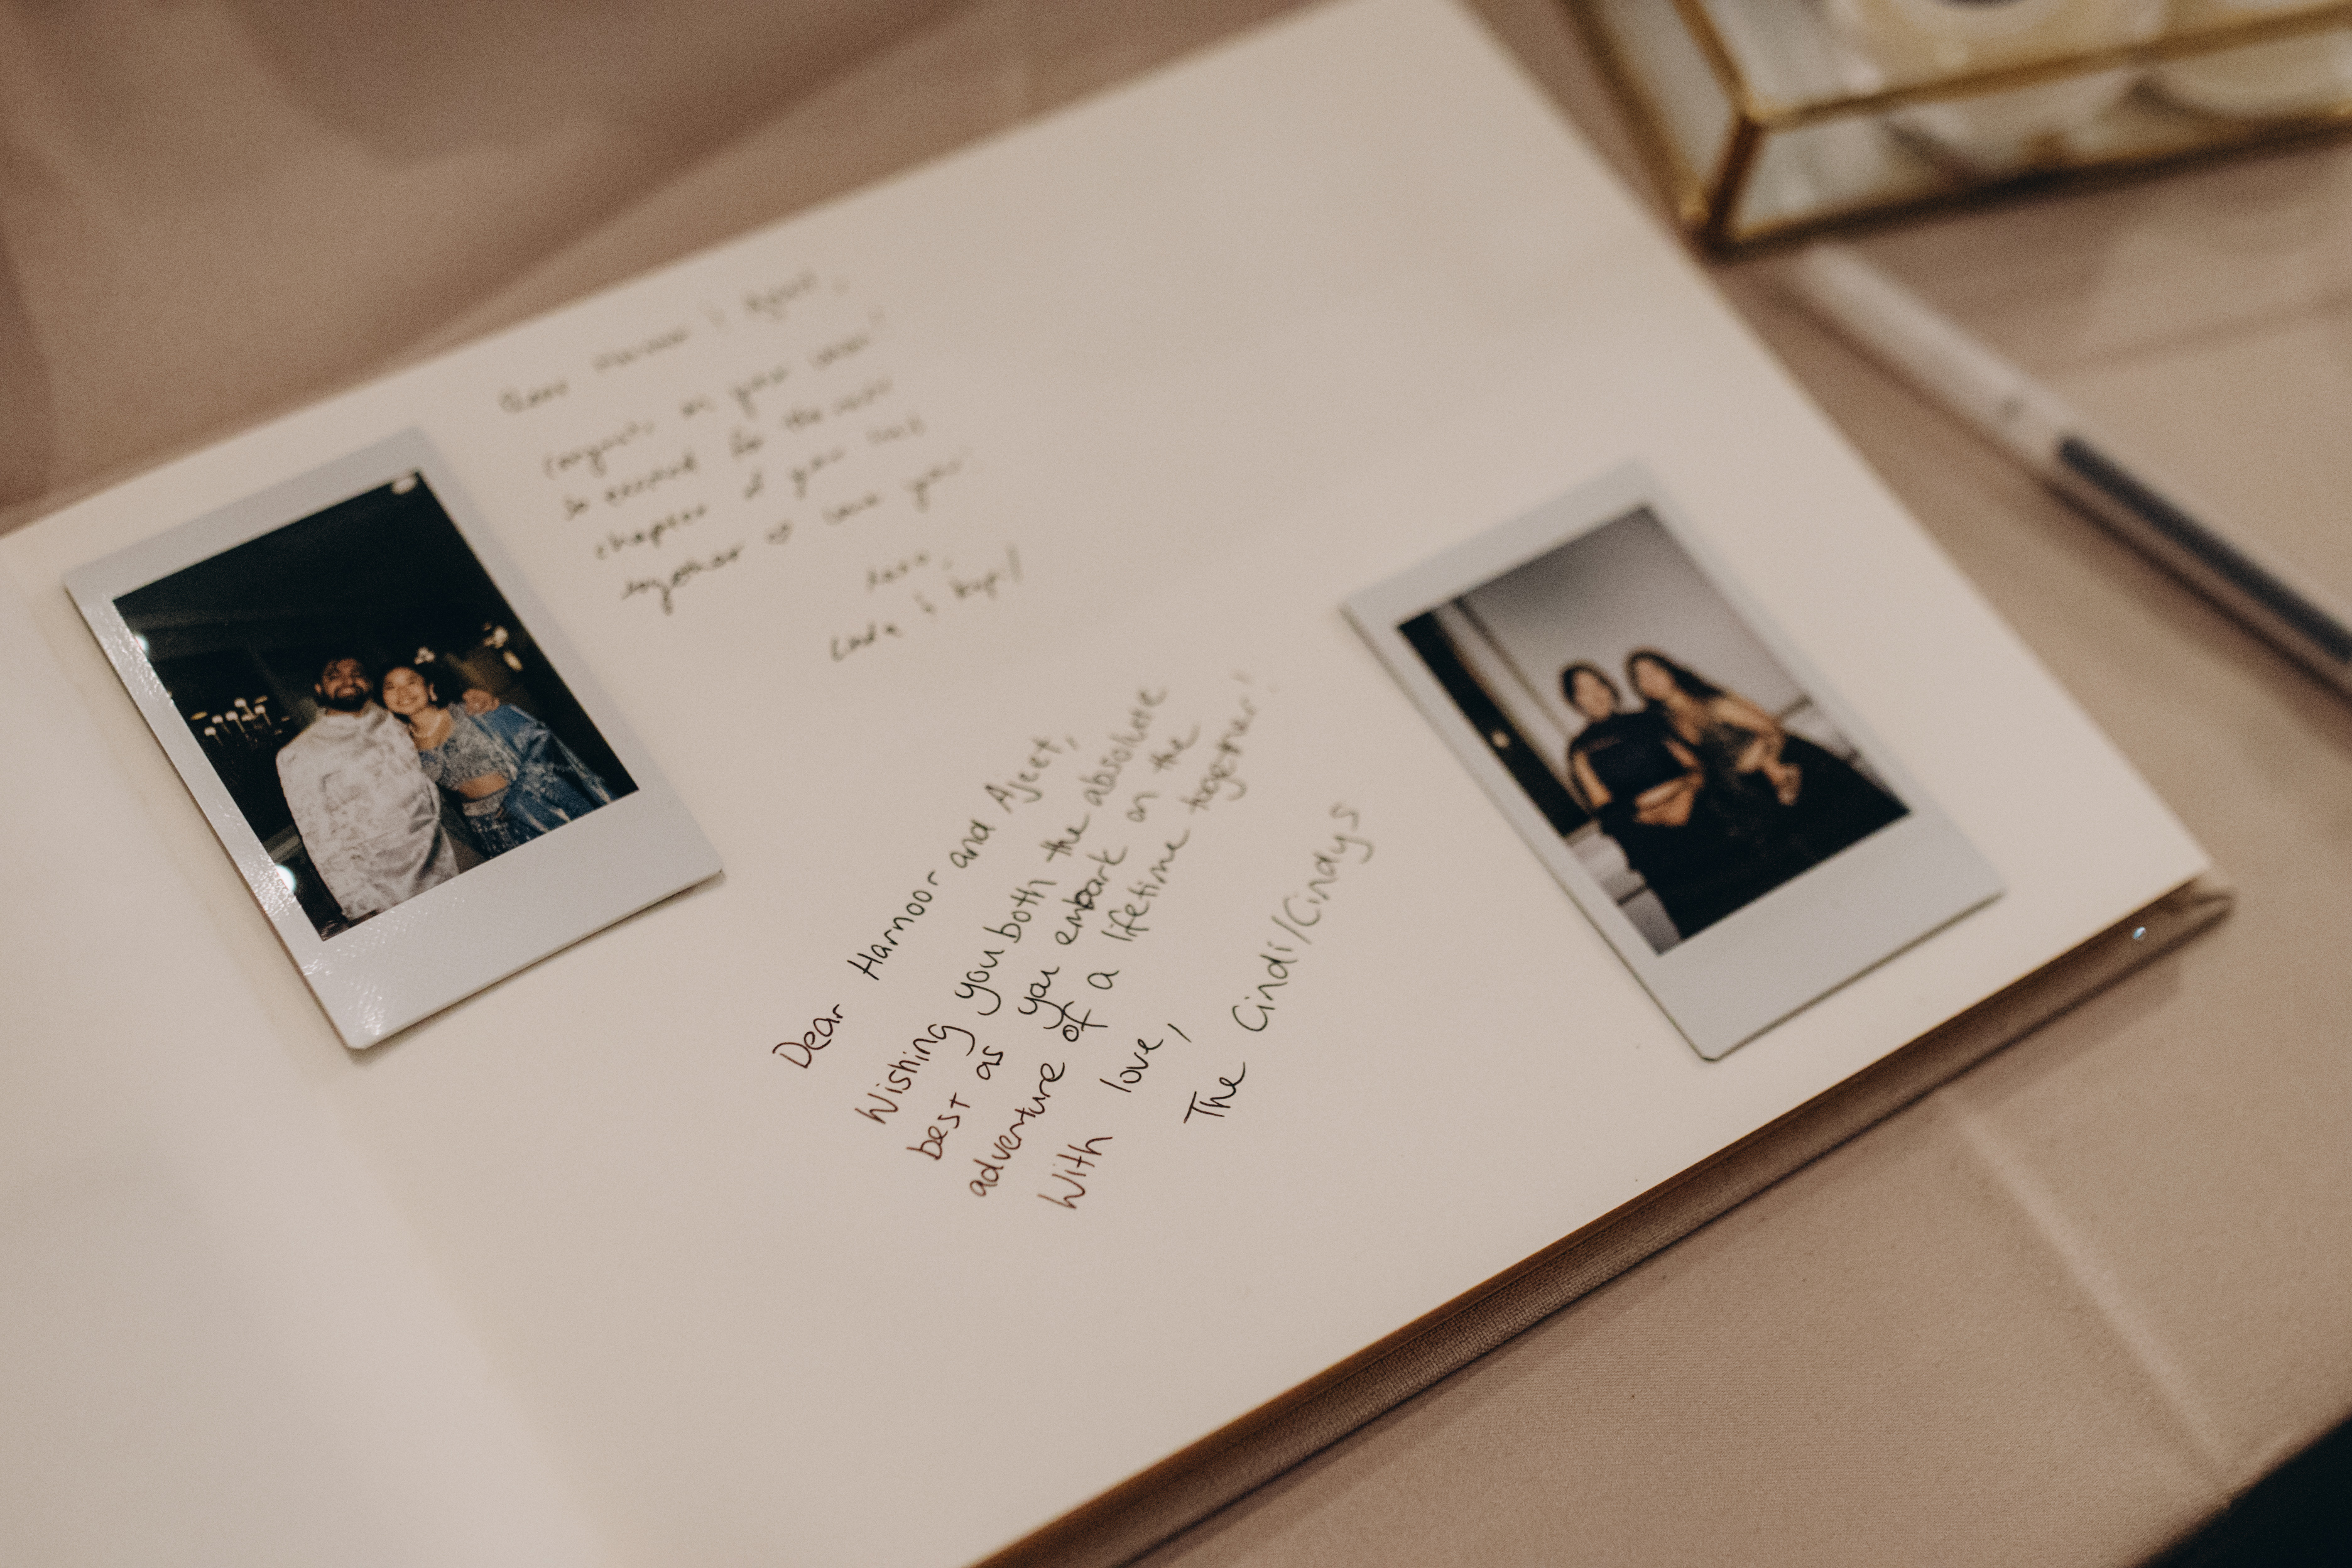 Dear Harnoor & Ajeet,
congrats on your
so excited for the next
chapter of your
together & love you!
love,
&
Dear Harnoor and Ajeet,
Wishing you both the absolute
best as you embark on the
adventure of a lifetime together!
With love,
The Cindi/Cindys